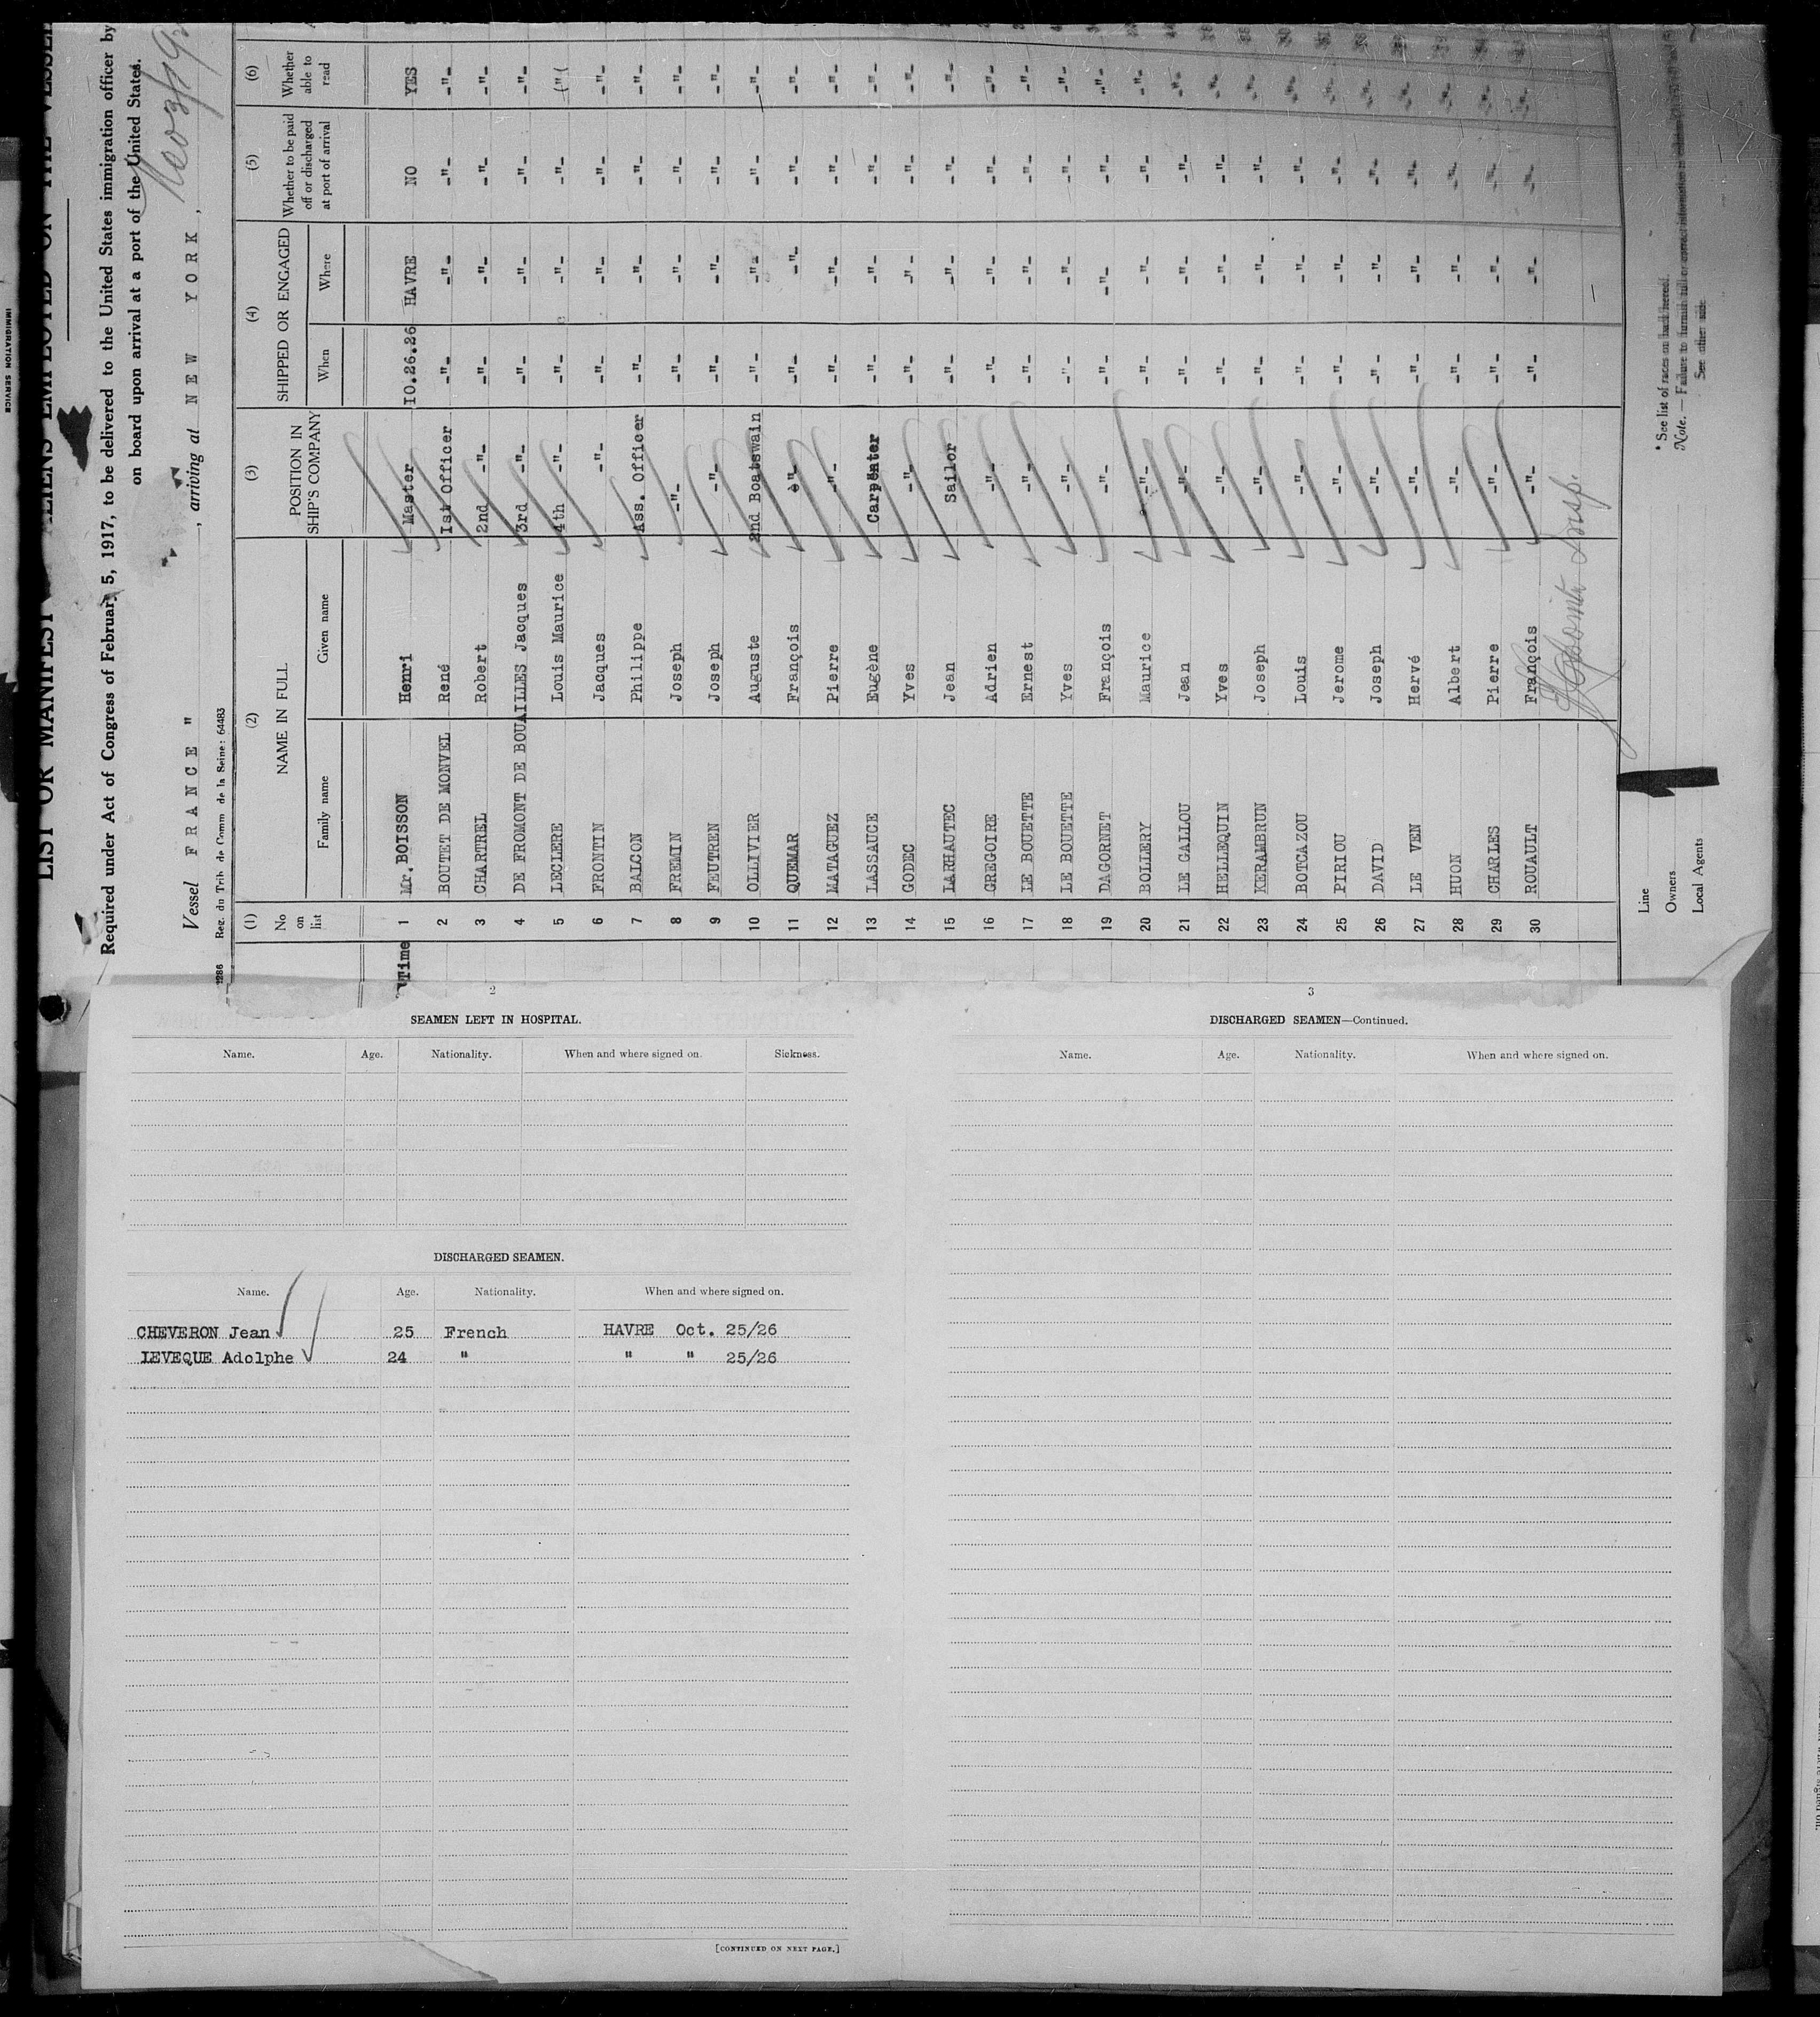 LIST OR MANIFEST
ALIENS EMPLOYED ON THE VESSEL
Required under Act of Congress of February 5, 1917, to be delivered to the United States immigration officer by
on board upon arrival at a port of the United States.
Vessel FRANCE " , arriving at NEW YORK ,
Reg. du Trib. de Comm de la Seine: 64483
(1) (2) (3) (4) (5) (6)
No on list NAME IN FULL POSITION IN SHIP'S COMPANY SHIPPED OR ENGAGED Whether to be paid off or discharged at port of arrival Whether able to read
Family name Given name When Where
1 Mr. BOISSON Henri Master 10.26.26 HAVRE NO YES
2 BOUTET DE MONVEL René 1st Officer -"- -"- -"- -"-
3 CHARTREL Robert 2nd -"- -"- -"- -"- -"-
4 DE FROMONT DE BOUAILLES Jacques 3rd -"- -"- -"- -"- -"-
5 LECLERE Louis Maurice 4th -"- -"- -"- -"- (" (
6 FRONTIN Jacques -"- -"- -"- -"- -"-
7 BALCON Philippe Ass. Officer -"- -"- -"- -"-
8 FREMIN Joseph -"- -"- -"- -"- -"-
9 FEUTREN Joseph -"- -"- -"- -"- -"-
10 OLLIVIER Auguste 2nd Boatswain -"- -"- -"- -"-
11 QUEMAR François -"- -"- -"- -"- -"-
12 MATAGUEZ Pierre -"- -"- -"- -"- -"-
13 LASSAUCE Eugène Carpenter -"- -"- -"- -"-
14 GODEC Yves -"- -"- -"- -"- -"-
15 LARHAUTEC Jean Sailor -"- -"- -"- -"-
16 GREGOIRE Adrien -"- -"- -"- -"- -"-
17 LE BOUETTE Ernest -"- -"- -"- -"- -"-
18 LE BOUETTE Yves -"- -"- -"- -"- -"-
19 DAGORNET François -"- -"- -"- -"- -"-
20 BOLLERY Maurice -"- -"- -"- -"- -"-
21 LE GALLOU Jean -"- -"- -"- -"- -"-
22 HELLEQUIN Yves -"- -"- -"- -"- -"-
23 KERAMBRUN Joseph -"- -"- -"- -"- -"-
24 BOTCAZOU Louis -"- -"- -"- -"- -"-
25 PIRIOU Jerome -"- -"- -"- -"- -"-
26 DAVID Joseph -"- -"- -"- -"- -"-
27 LE VEN Hervé -"- -"- -"- -"- -"-
28 HUON Albert -"- -"- -"- -"- -"-
29 CHARLES Pierre -"- -"- -"- -"- -"-
30 ROUAULT François -"- -"- -"- -"- -"-
Insp.
Line
Owners
Local Agents
* See list of races on back hereof.
Note. — Failure to furnish full or correct information
See other side
IMMIGRATION SERVICE
2
SEAMEN LEFT IN HOSPITAL.
Name. Age. Nationality. When and where signed on. Sickness.
DISCHARGED SEAMEN.
Name. Age. Nationality. When and where signed on.
CHEVERON Jean 25 French HAVRE Oct. 25/26
LEVEQUE Adolphe 24 " " " 25/26
[CONTINUED ON NEXT PAGE.]
3
DISCHARGED SEAMEN—Continued.
Name. Age. Nationality. When and where signed on.